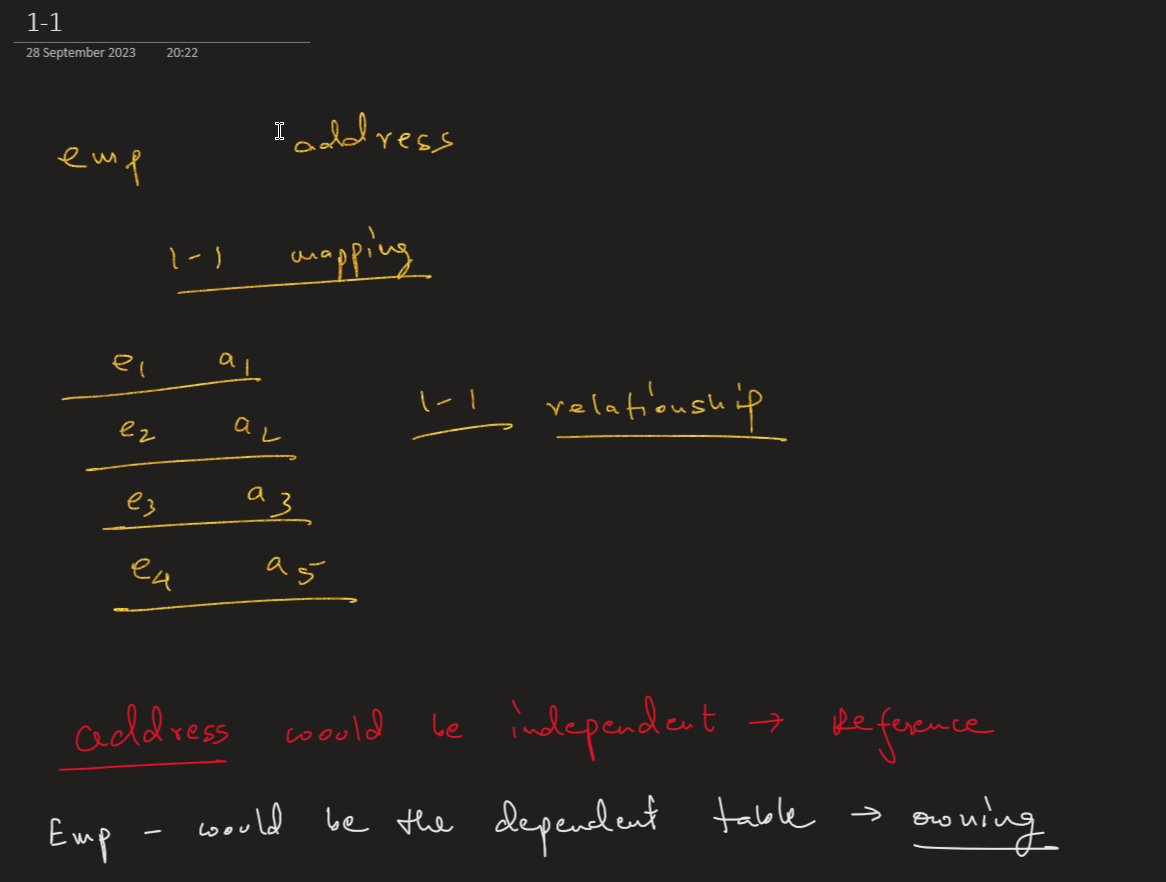 1-1
28 September 2023 20:22
emp address
1-1 mapping
e1 a1
1-1 relationship
e2 a2
e3 a3
e4 a5
address would be independent → Reference
Emp - would be the dependent table → owning